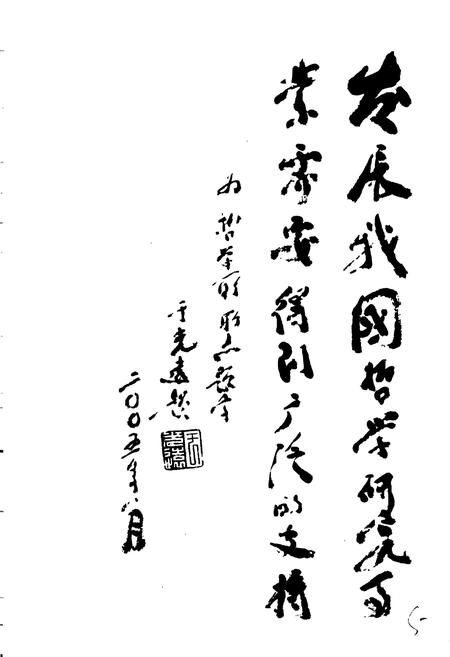 发展我國哲学研究事
業需要得到广泛的支持
为哲学所所庆题字
于光遠
二〇〇五年八月